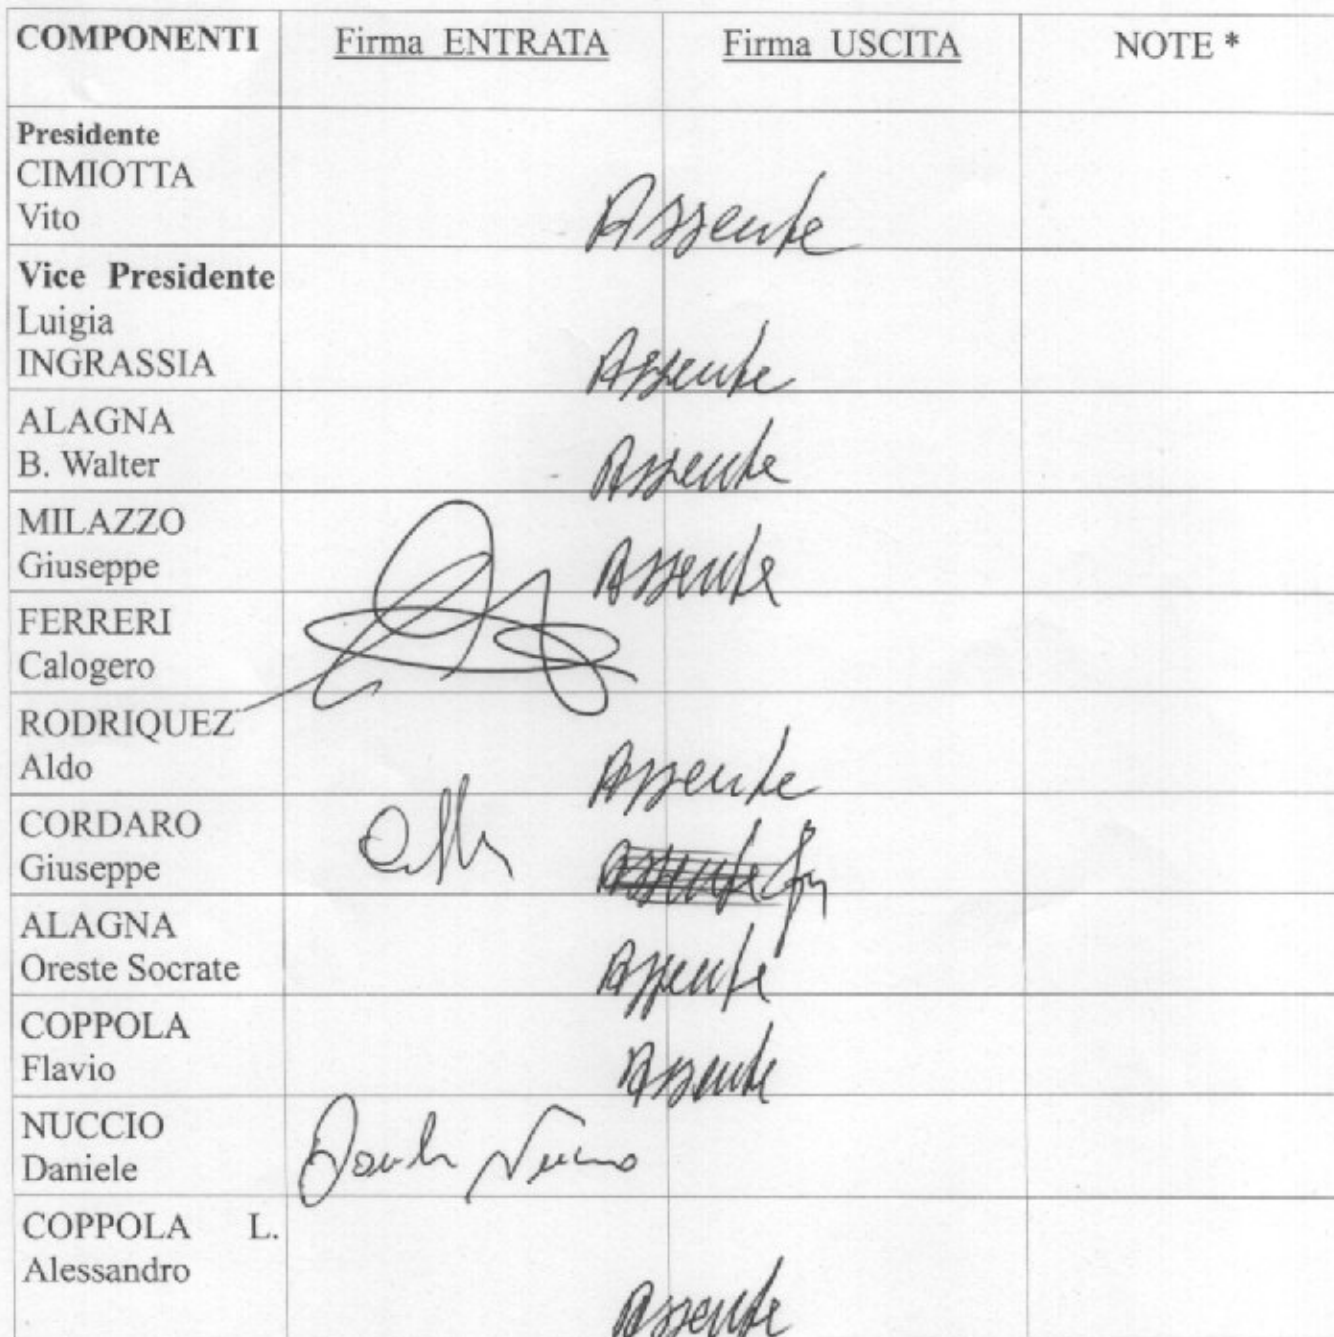 COMPONENTI Firma ENTRATA Firma USCITA NOTE *
Presidente
CIMIOTTA
Vito
Assente
Vice Presidente
Luigia
INGRASSIA
Assente
ALAGNA
B. Walter
Assente
MILAZZO
Giuseppe
Assente
FERRERI
Calogero
RODRIQUEZ
Aldo
Assente
CORDARO
Giuseppe
Assente
ALAGNA
Oreste Socrate
Assente
COPPOLA
Flavio
Assente
NUCCIO
Daniele
Daniele Nuccio
COPPOLA L.
Alessandro
Assente